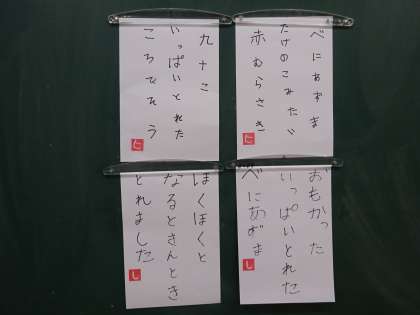 べにあずま
たけのこみたい
赤むらさき
九十こ
いっぱいとれた
おもかった
いっぱいとれた
べにあずま
し
ほくほくと
なるときんとき
とれました
し